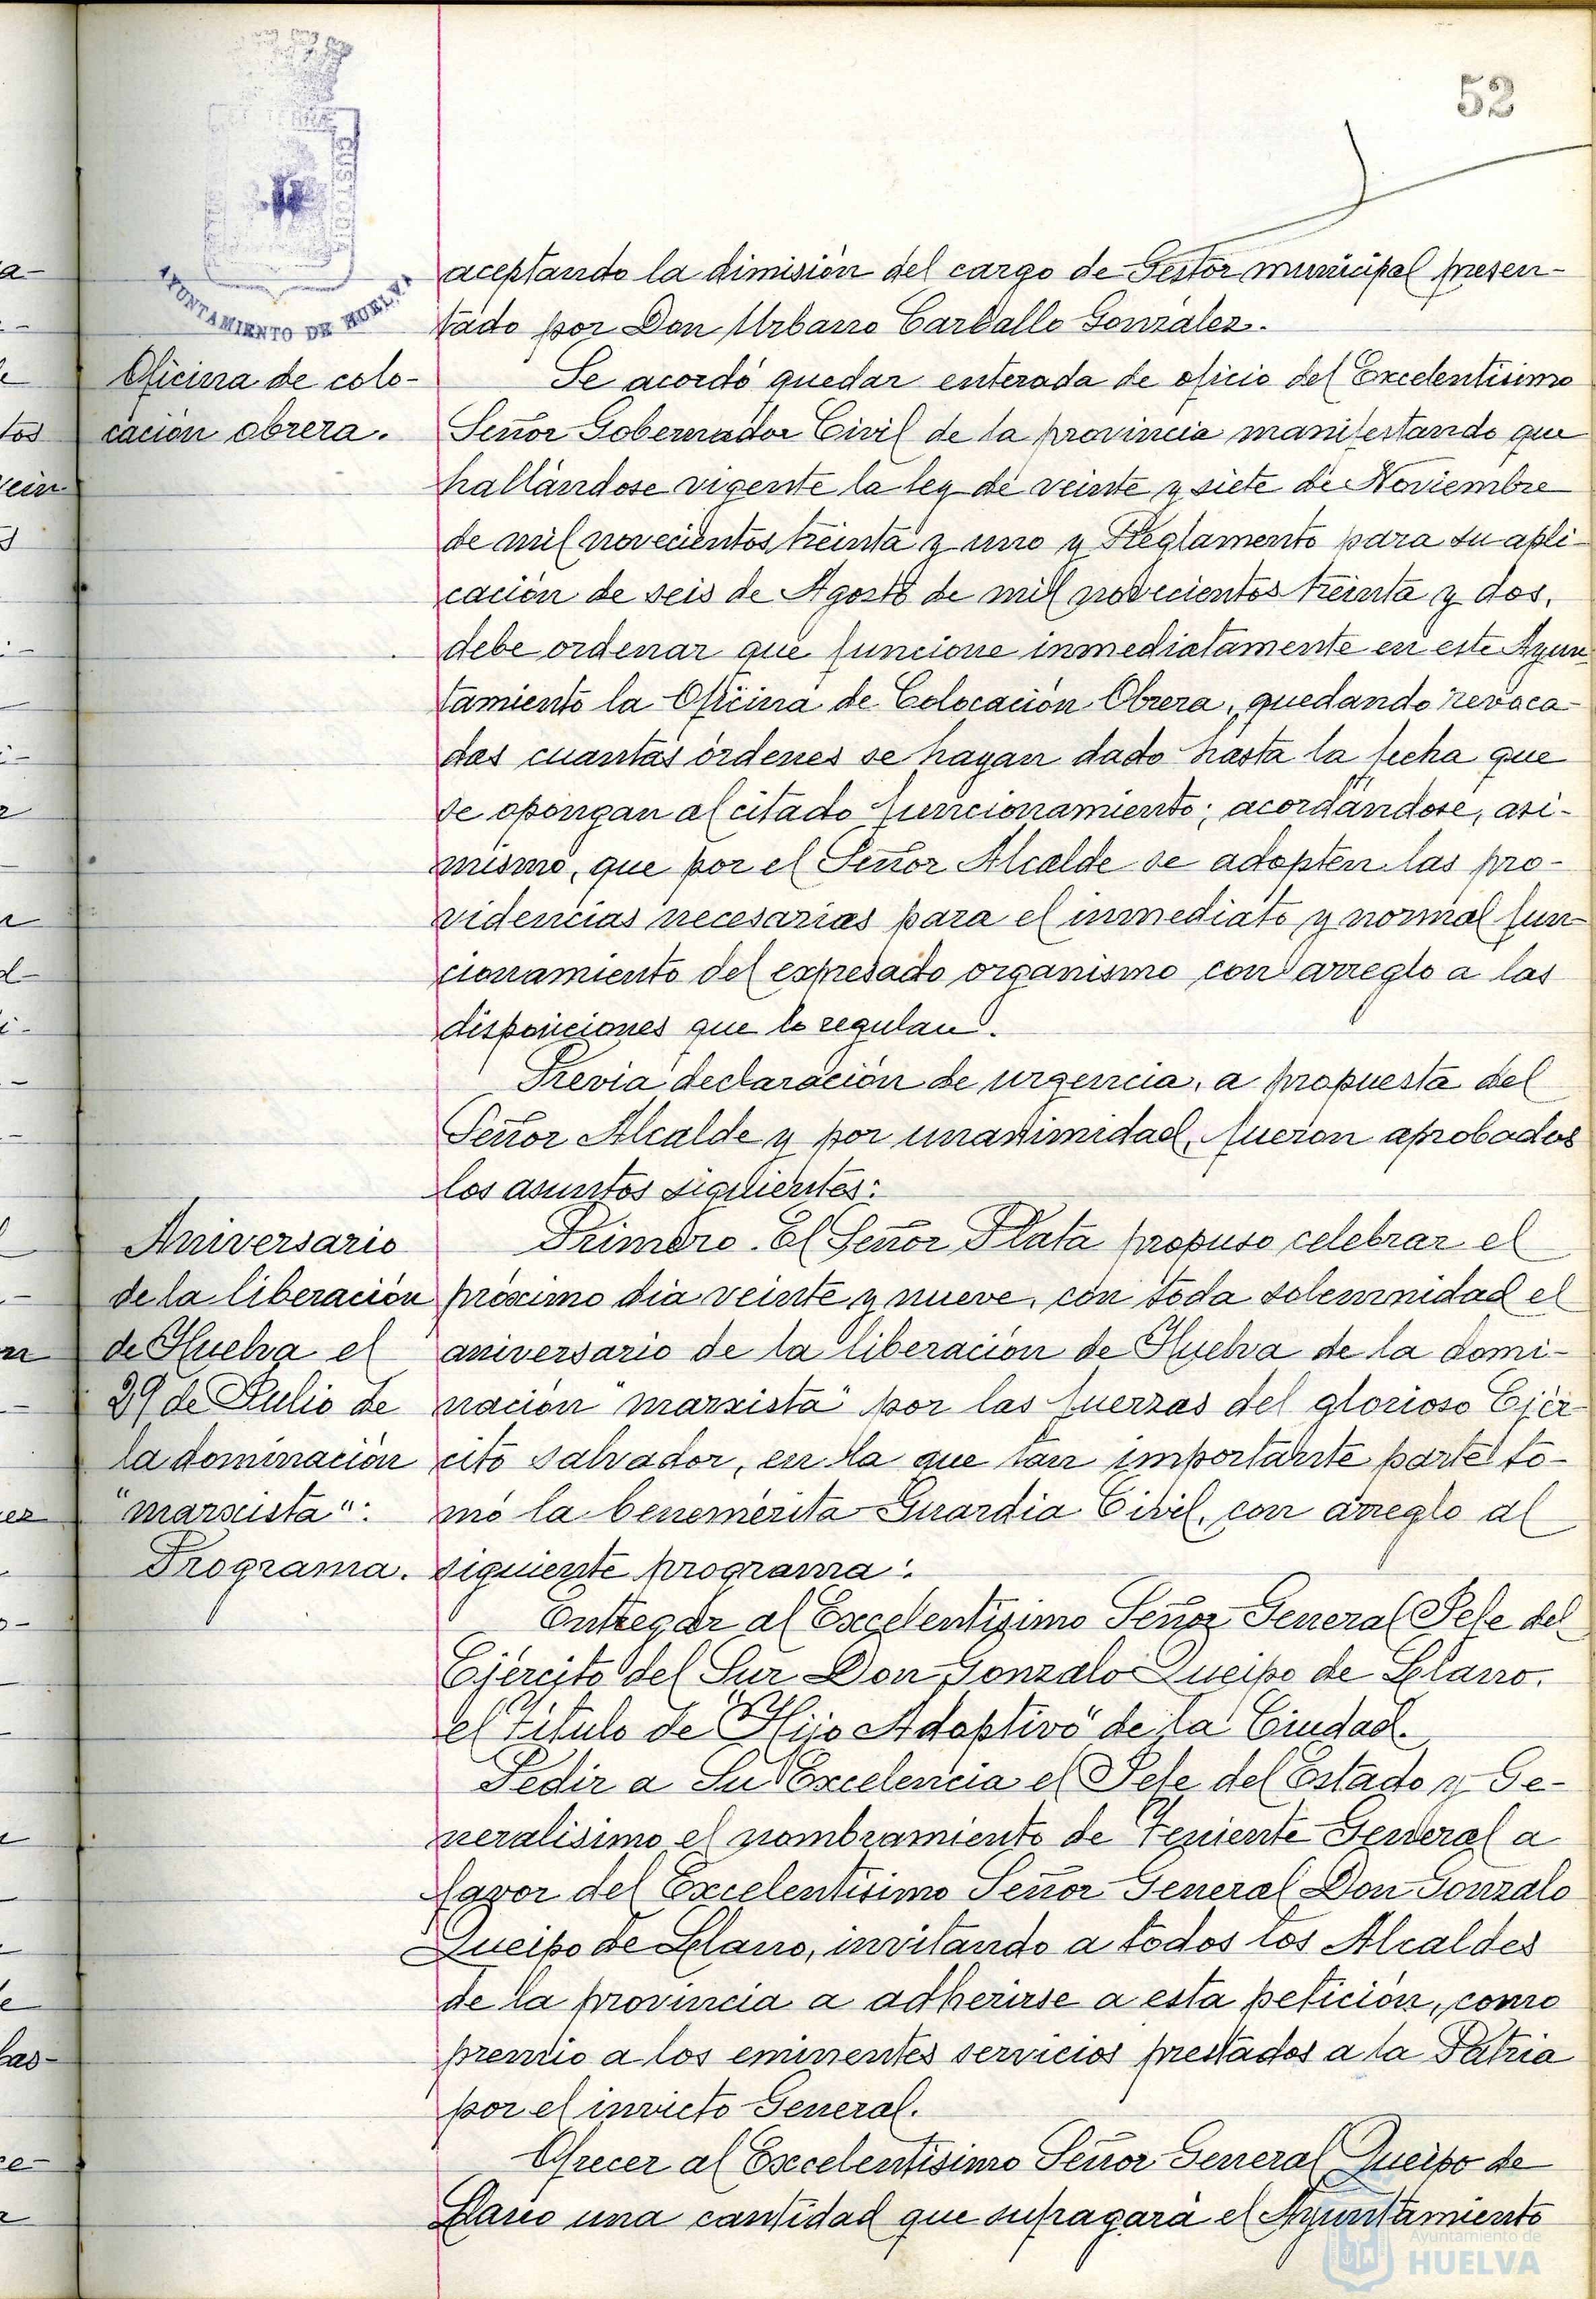 52
AYUNTAMIENTO DE HUELVA
aceptando la dimisión del cargo de Gestor municipal presen-
tado por Don Urbano Carballo González.
Oficina de colo-
cación obrera.
Se acordó quedar enterada de oficio del Excelentísimo
Señor Gobernador Civil de la provincia manifestando que
hallándose vigente la ley de veinte y siete de Noviembre
de mil novecientos treinta y uno y Reglamento para su apli-
cación de seis de Agosto de mil novecientos treinta y dos,
debe ordenar que funcione inmediatamente en este Ayun
tamiento la Oficina de Colocación Obrera, quedando revoca-
das cuantas órdenes se hayan dado hasta la fecha que
se opongan al citado funcionamiento; acordándose, asi-
mismo, que por el Señor Alcalde se adopten las pro-
videncias necesarias para el inmediato y normal fun-
cionamiento del expresado organismo con arreglo a las
disposiciones que lo regulan.
Previa declaración de urgencia, a propuesta del
Señor Alcalde y por unanimidad, fueron aprobados
los asuntos siguientes:
Aniversario
de la liberación
de Huelva el
29 de Julio de
la dominación
"marxista":
Programa.
Primero. El Señor Plata propuso celebrar el
próximo dia veinte y nueve, con toda solemnidad el
aniversario de la liberación de Huelva de la domi-
nación "marxista" por las fuerzas del glorioso Ejér-
cito salvador, en la que tan importante parte to-
mó la benemérita Guardia Civil, con arreglo al
siguiente programa:
Entregar al Excelentísimo Señor General Jefe del
Ejército del Sur Don Gonzalo Queipo de Llano,
el título de "Hijo Adoptivo" de la Ciudad.
Pedir a Su Excelencia el Jefe del Estado y Ge-
neralísimo el nombramiento de Teniente General a
favor del Excelentísimo Señor General Don Gonzalo
Queipo de Llano, invitando a todos los Alcaldes
de la provincia a adherirse a esta petición, como
premio a los eminentes servicios prestados a la Patria
por el invicto General.
Ofrecer al Excelentísimo Señor General Queipo de
Llano una cantidad que sufragará el Ayuntamiento
Ayuntamiento de
HUELVA